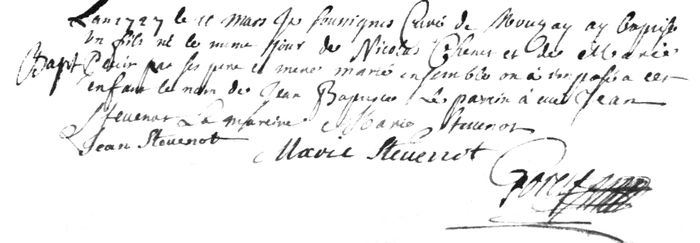 L'an 1727 le 11 mars Je soussigné Curé de Mouzay ay baptisé
un fils né le meme jour de Nicolas et de Marie
Bapt
ses pere et mere mariés ensembles on a imposé a cet
enfant le nom de Jean Baptiste Le parein a eté Jean
Stevenot La mareine Marie Stevenot
Jean Stevenot
Marie Stevenot